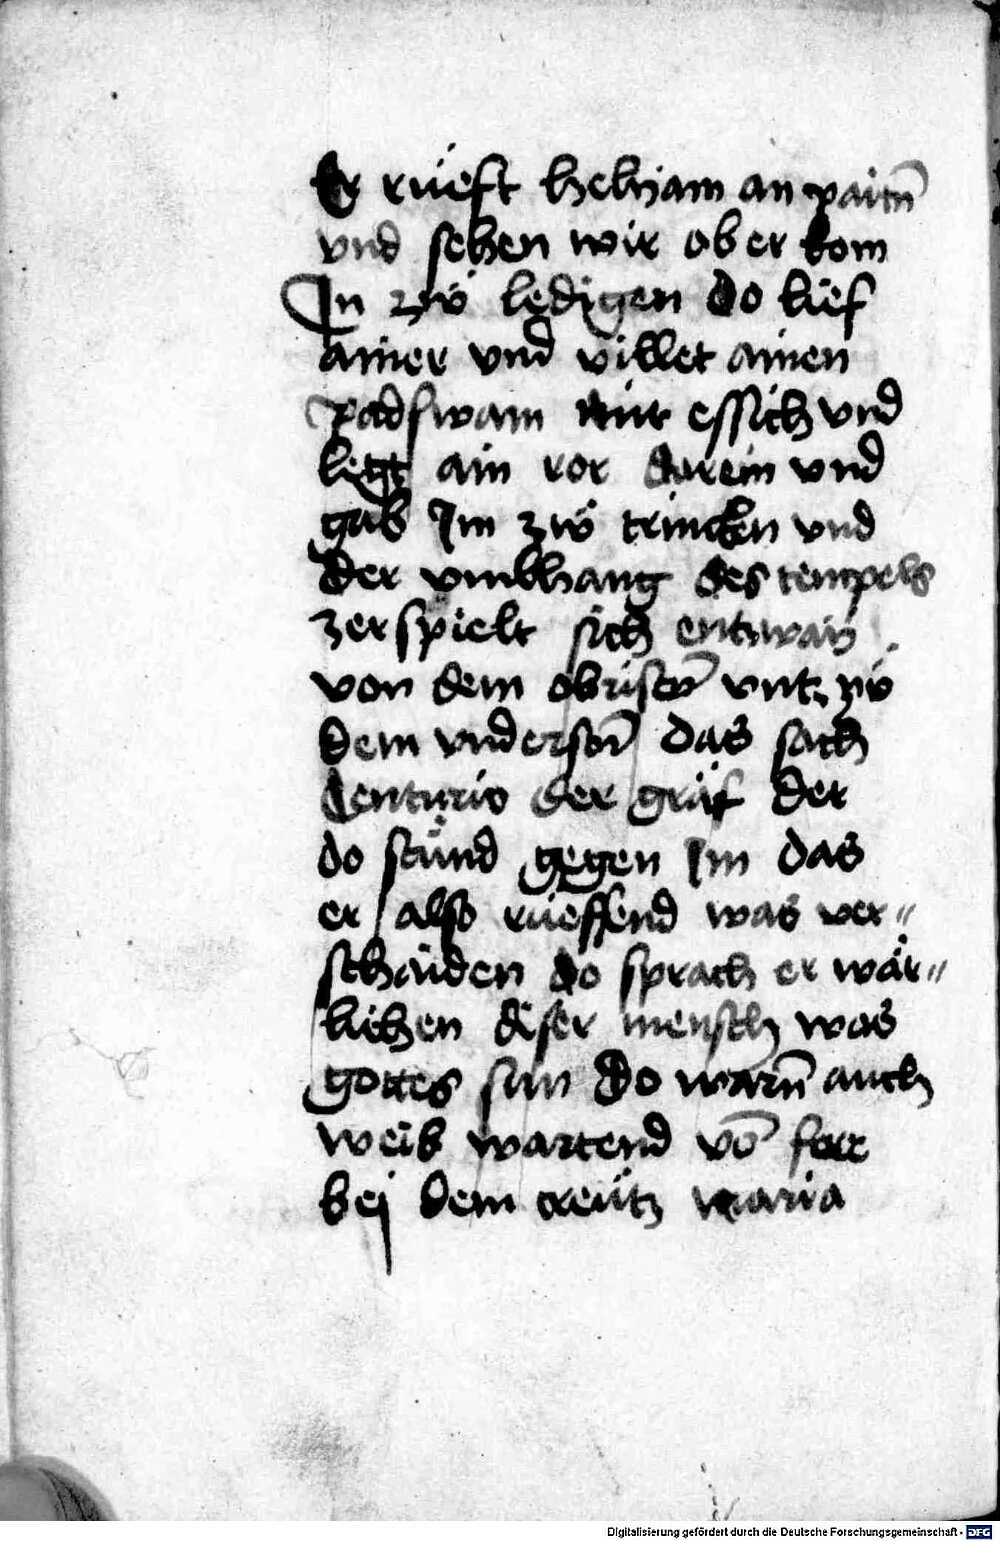 Er rüeft helyam an paitn̄
vnd sehen wir ob er kom
In zw̎ ledigen do lief
ainer vnd villet ainen
padswam mit essich vnd
legt ain ror darein vnd
gab Im zw̎ trincken vnd
der vmbhang des tempels
zerspielt sich entzwaÿ
von dem obristn̄ vntz zw̎
dem vnderstn̄ das sach
Centurio der graf der
do stůnd gegen Im das
er also rüeffend was ver〃
schaiden do sprach er wär〃
lichen diser mensch was
gottes sun do warn̄ auch
weib wartend võ ferr
bej dem creütz maria
Digitalisierung gefördert durch die Deutsche Forschungsgemeinschaft - DFG